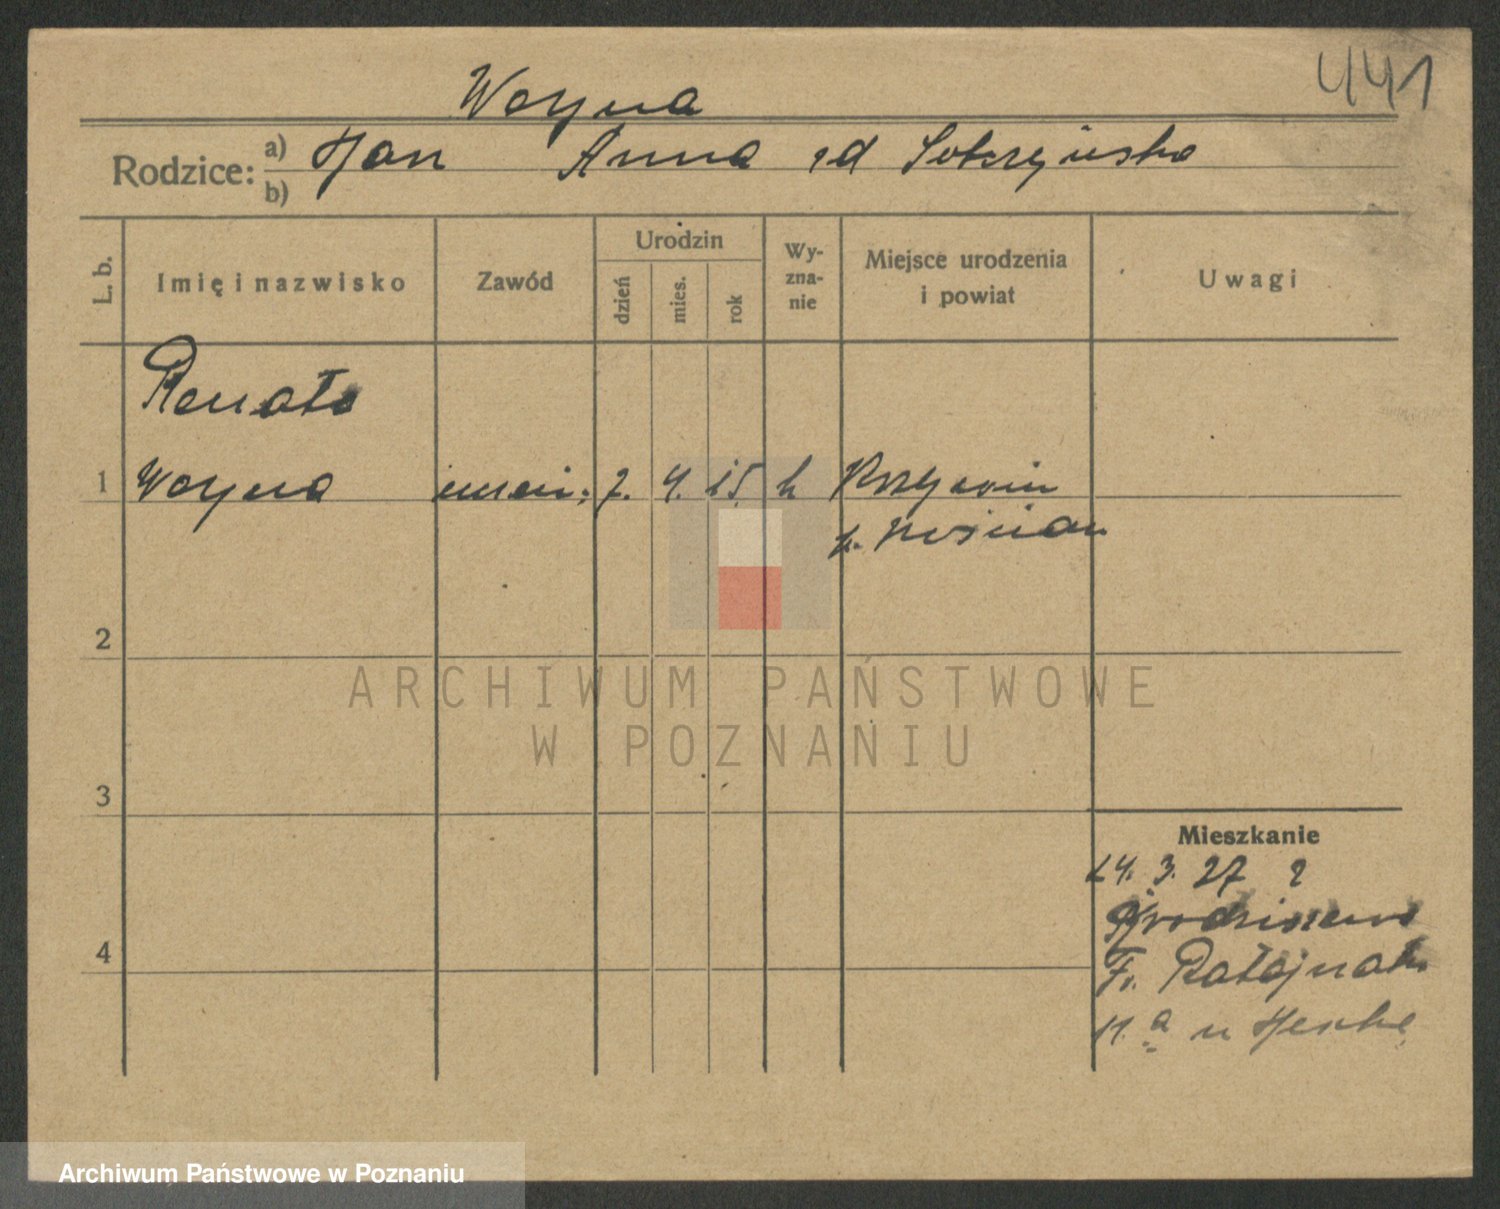 441
Woyna
Rodzice: a) b) Jan Anna Sobczyńska
L. b.
Imię i nazwisko
Zawód
Urodzin
dzień
mies.
rok
Wy-
zna-
nie
Miejsce urodzenia
i powiat
Uwagi
Renata
1 Woyna 7. 4. 15 k Krzywin
p. Kościan
2
3
4
Mieszkanie
24. 3. 27
F. Ratajczaka
11 a u
ARCHIWUM PAŃSTWOWE
W POZNANIU
Archiwum Państwowe w Poznaniu